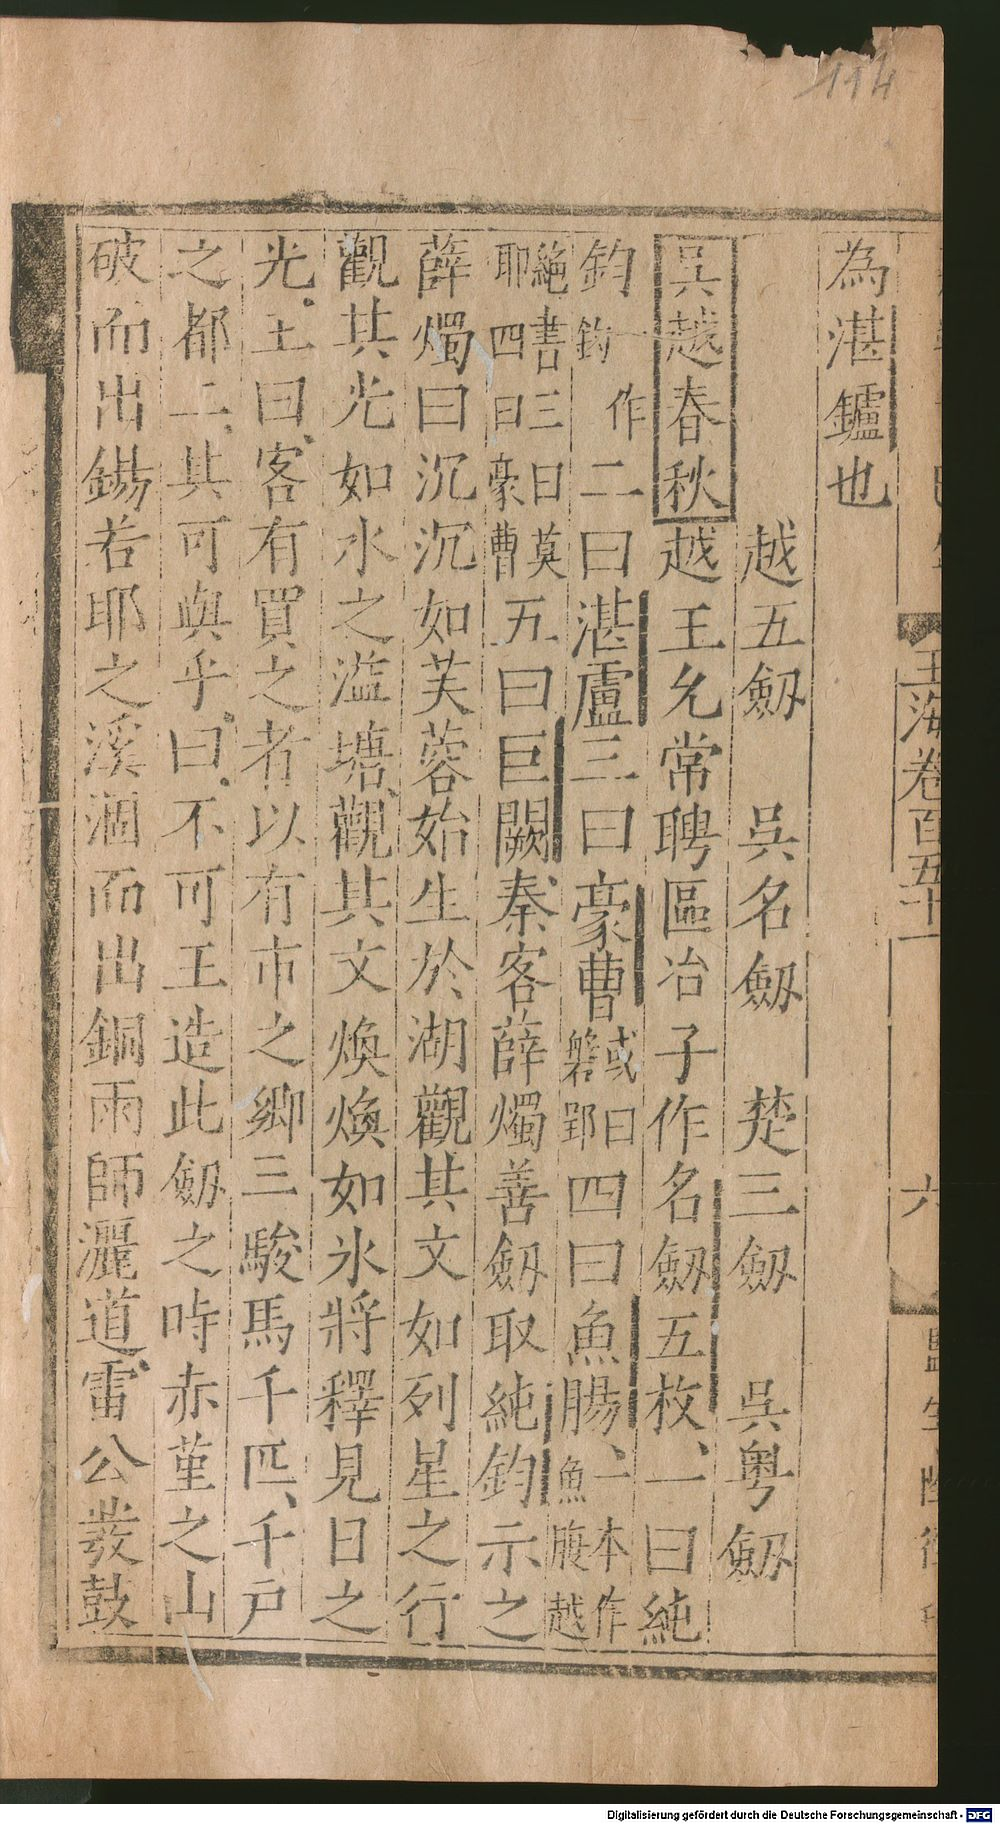 114
玉海卷百五十一
六
為湛鑪也
越五劔　吳名劔　楚三劔　吳粵劔
吳越春秋越王允常聘區冶子作名劔五枚一曰純
鈞一作鈎二曰湛盧三曰豪曹或曰磐郢四曰魚腸一本作魚膓越
絕書三曰莫耶四曰豪曹五曰巨闕秦客薛燭善劔取純鈞示之
薛燭曰沉沉如芙蓉始生於湖觀其文如列星之行
觀其光如水之溢塘觀其文煥煥如氷將釋見日之
光王曰客有買之者以有市之鄉三駿馬千匹千戶
之都二其可與乎曰不可王造此劔之時赤堇之山
破而出錫若耶之溪涸而出銅雨師灑道雷公發鼓
Digitalisierung gefördert durch die Deutsche Forschungsgemeinschaft - DFG